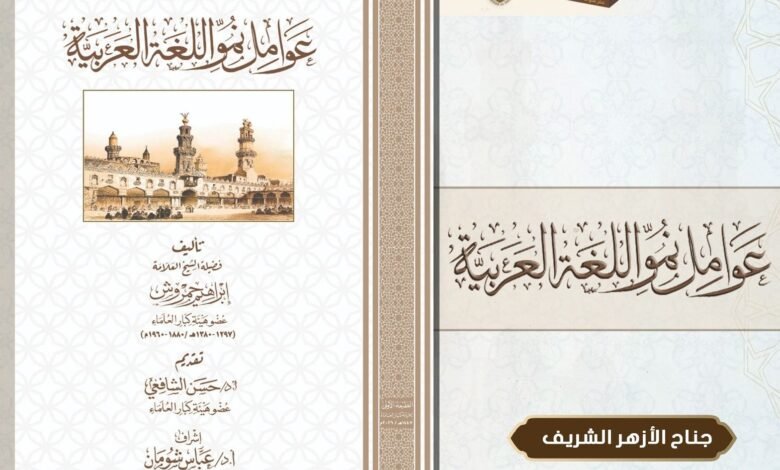 عَوَامِلُ نُمُوِّ اللُّغَةِ العَرَبِيَّةِ
تأليف
فضيلة الشيخ العلامة
إبراهيم حمروش
عضو هيئة كبار العلماء
(١٢٩٧-١٣٨٠هـ / ١٨٨٠-١٩٦٠م)
تقديم
أ.د/ حسن الشافعي
عضو هيئة كبار العلماء
إشراف
أ.د/ عباس شومان
الطبعة الأولى
عَوَامِلُ نُمُوِّ اللُّغَةِ العَرَبِيَّةِ
جناح الأزهر الشريف